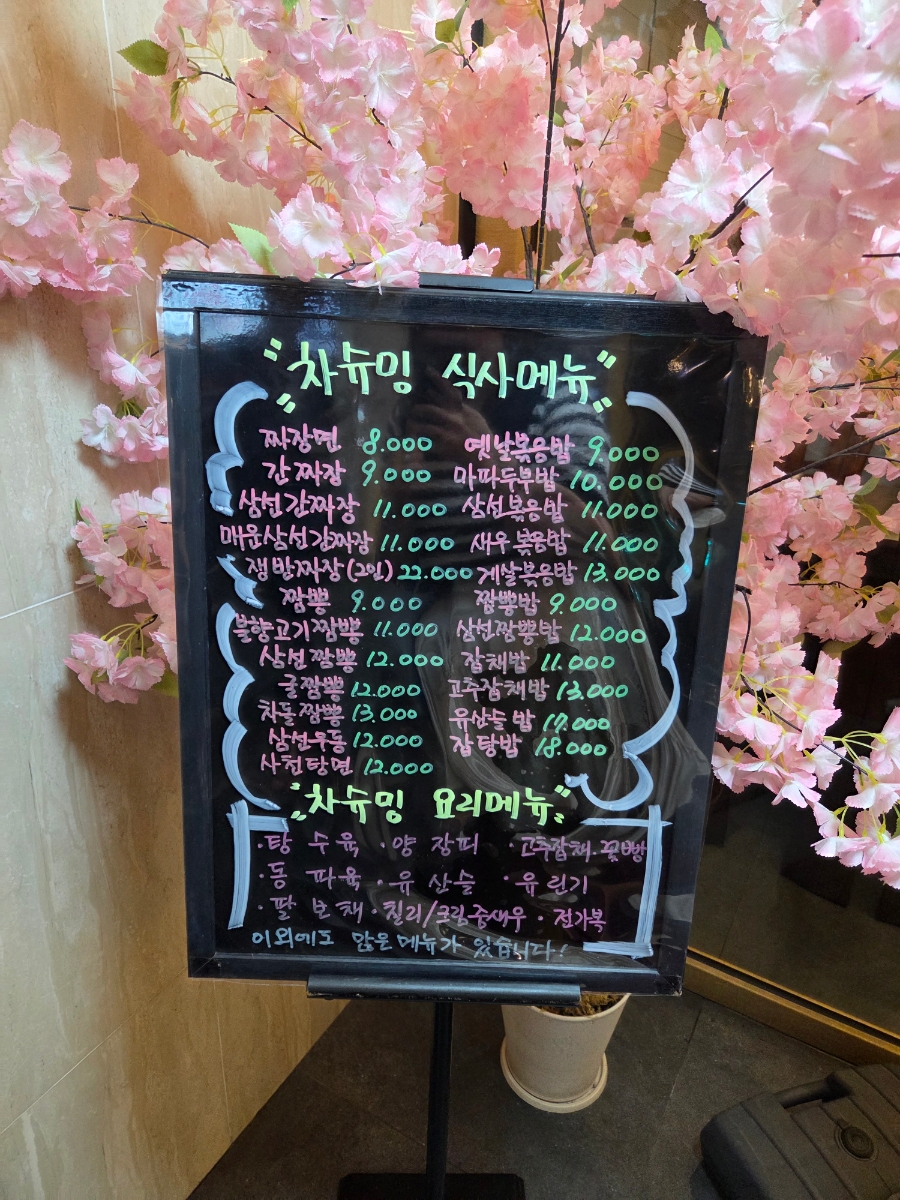 차슈밍 식사메뉴
짜장면 8.000 옛날볶음밥 9.000
간짜장 9.000 마파두부밥 10.000
삼선간짜장 11.000 삼선볶음밥 11.000
매운삼선간짜장 11.000 새우볶음밥 11.000
쟁반짜장(2인) 22.000 게살볶음밥 13.000
짬뽕 9.000 짬뽕밥 9.000
불향고기짬뽕 11.000 삼선짬뽕밥 12.000
삼선짬뽕 12.000 잡채밥 11.000
굴짬뽕 12.000 고추잡채밥 13.000
차돌짬뽕 13.000 유산슬밥 17.000
삼선우동 12.000 잡탕밥 18.000
사천탕면 12.000
차슈밍 요리메뉴
·탕수육 ·양장피 ·고추잡채.꽃빵
·동파육 ·유산슬 ·유린기
·팔보채 ·칠리/크림중새우 ·전가복
이외에도 많은메뉴가 있습니다!